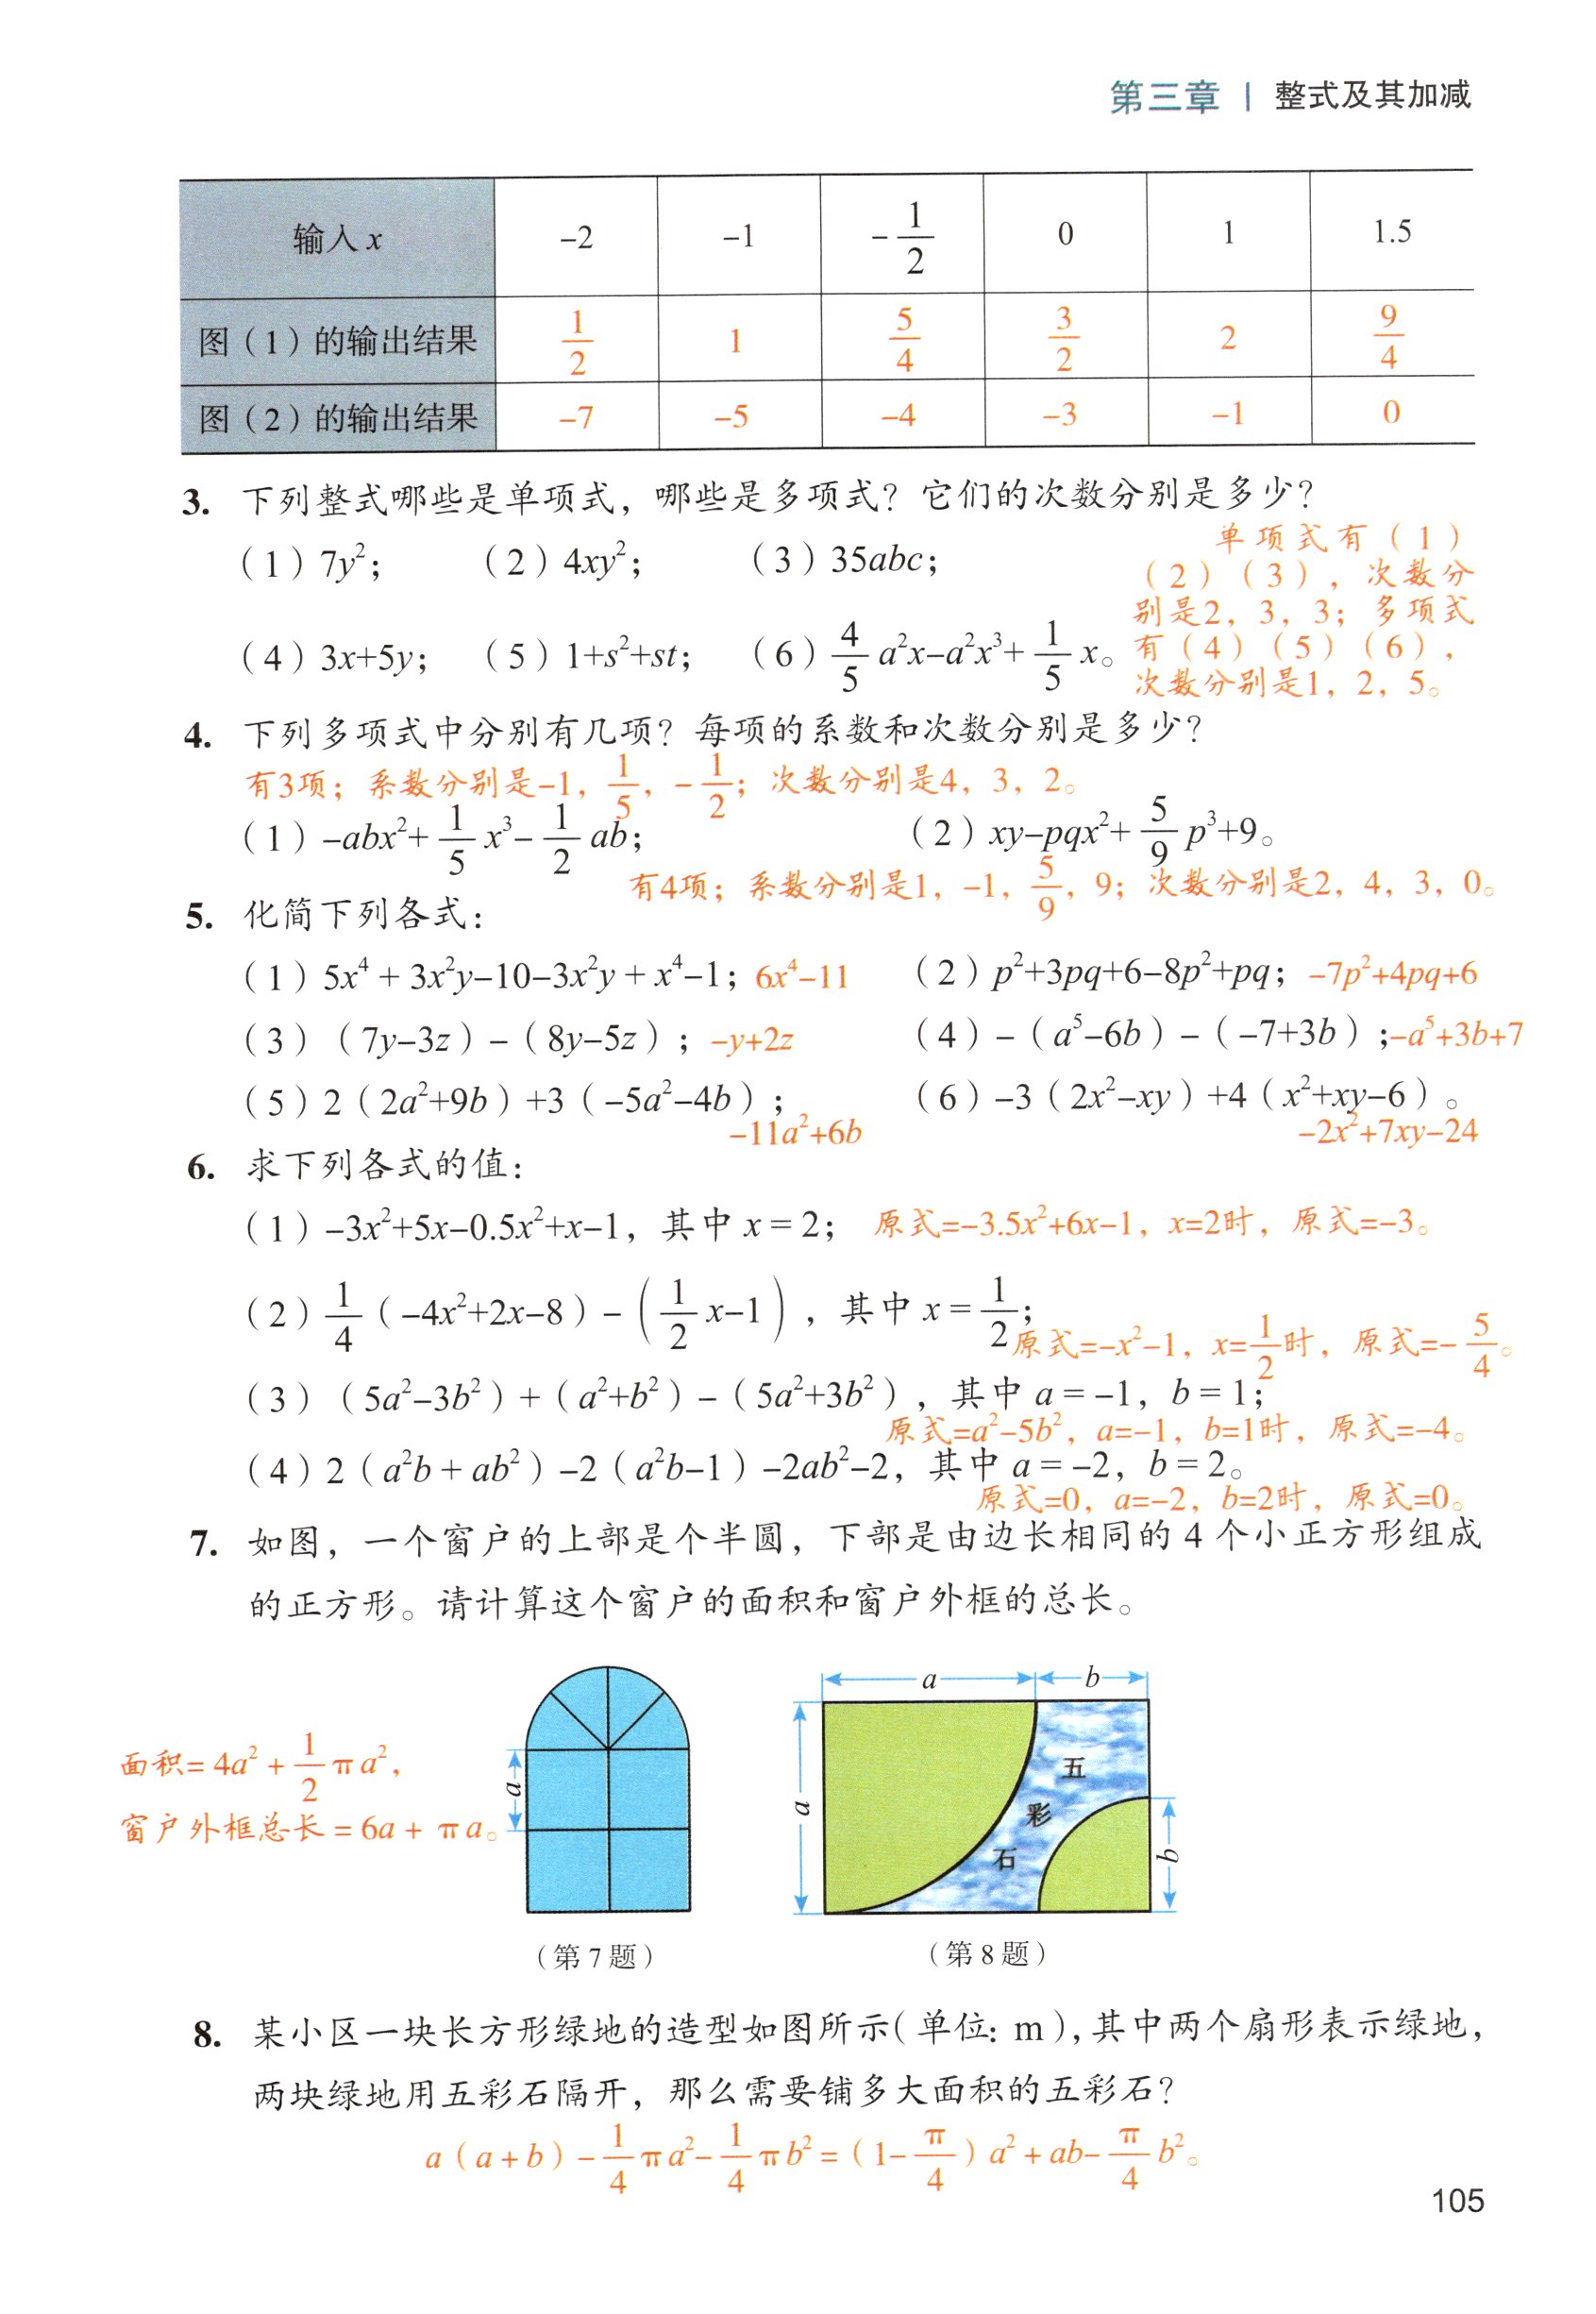 第三章 | 整式及其加减
输入 x −2 −1 −1/2 0 1 1.5
图（1）的输出结果 1/2 1 5/4 3/2 2 9/4
图（2）的输出结果 −7 −5 −4 −3 −1 0
3. 下列整式哪些是单项式，哪些是多项式？它们的次数分别是多少？
（1）7y²； （2）4xy²； （3）35abc；
（4）3x+5y； （5）1+s²+st； （6）4/5 a²x−a²x³+1/5 x。
单项式有（1）
（2）（3），次数分
别是2，3，3；多项式
有（4）（5）（6），
次数分别是1，2，5。
4. 下列多项式中分别有几项？每项的系数和次数分别是多少？
有3项；系数分别是−1，1/5，−1/2；次数分别是4，3，2。
（1）−abx²+1/5 x³−1/2 ab； （2）xy−pqx²+5/9 p³+9。
有4项；系数分别是1，−1，5/9，9；次数分别是2，4，3，0。
5. 化简下列各式：
（1）5x⁴+3x²y−10−3x²y+x⁴−1；6x⁴−11 （2）p²+3pq+6−8p²+pq；−7p²+4pq+6
（3）（7y−3z）−（8y−5z）；−y+2z （4）−（a⁵−6b）−（−7+3b）；−a⁵+3b+7
（5）2（2a²+9b）+3（−5a²−4b）； （6）−3（2x²−xy）+4（x²+xy−6）。
−11a²+6b −2x²+7xy−24
6. 求下列各式的值：
（1）−3x²+5x−0.5x²+x−1，其中 x=2； 原式=−3.5x²+6x−1，x=2时，原式=−3。
（2）1/4（−4x²+2x−8）−（1/2 x−1），其中 x=1/2；
原式=−x²−1，x=1/2时，原式=−5/4。
（3）（5a²−3b²）+（a²+b²）−（5a²+3b²），其中 a=−1，b=1；
原式=a²−5b²，a=−1，b=1时，原式=−4。
（4）2（a²b+ab²）−2（a²b−1）−2ab²−2，其中 a=−2，b=2。
原式=0，a=−2，b=2时，原式=0。
7. 如图，一个窗户的上部是个半圆，下部是由边长相同的 4 个小正方形组成
的正方形。请计算这个窗户的面积和窗户外框的总长。
面积=4a²+1/2 πa²，
窗户外框总长=6a+πa。
a
a b
a
五
彩
石
b
（第7题） （第8题）
8. 某小区一块长方形绿地的造型如图所示（单位：m），其中两个扇形表示绿地，
两块绿地用五彩石隔开，那么需要铺多大面积的五彩石？
a（a+b）−1/4 πa²−1/4 πb²=（1−π/4）a²+ab−π/4 b²。
105